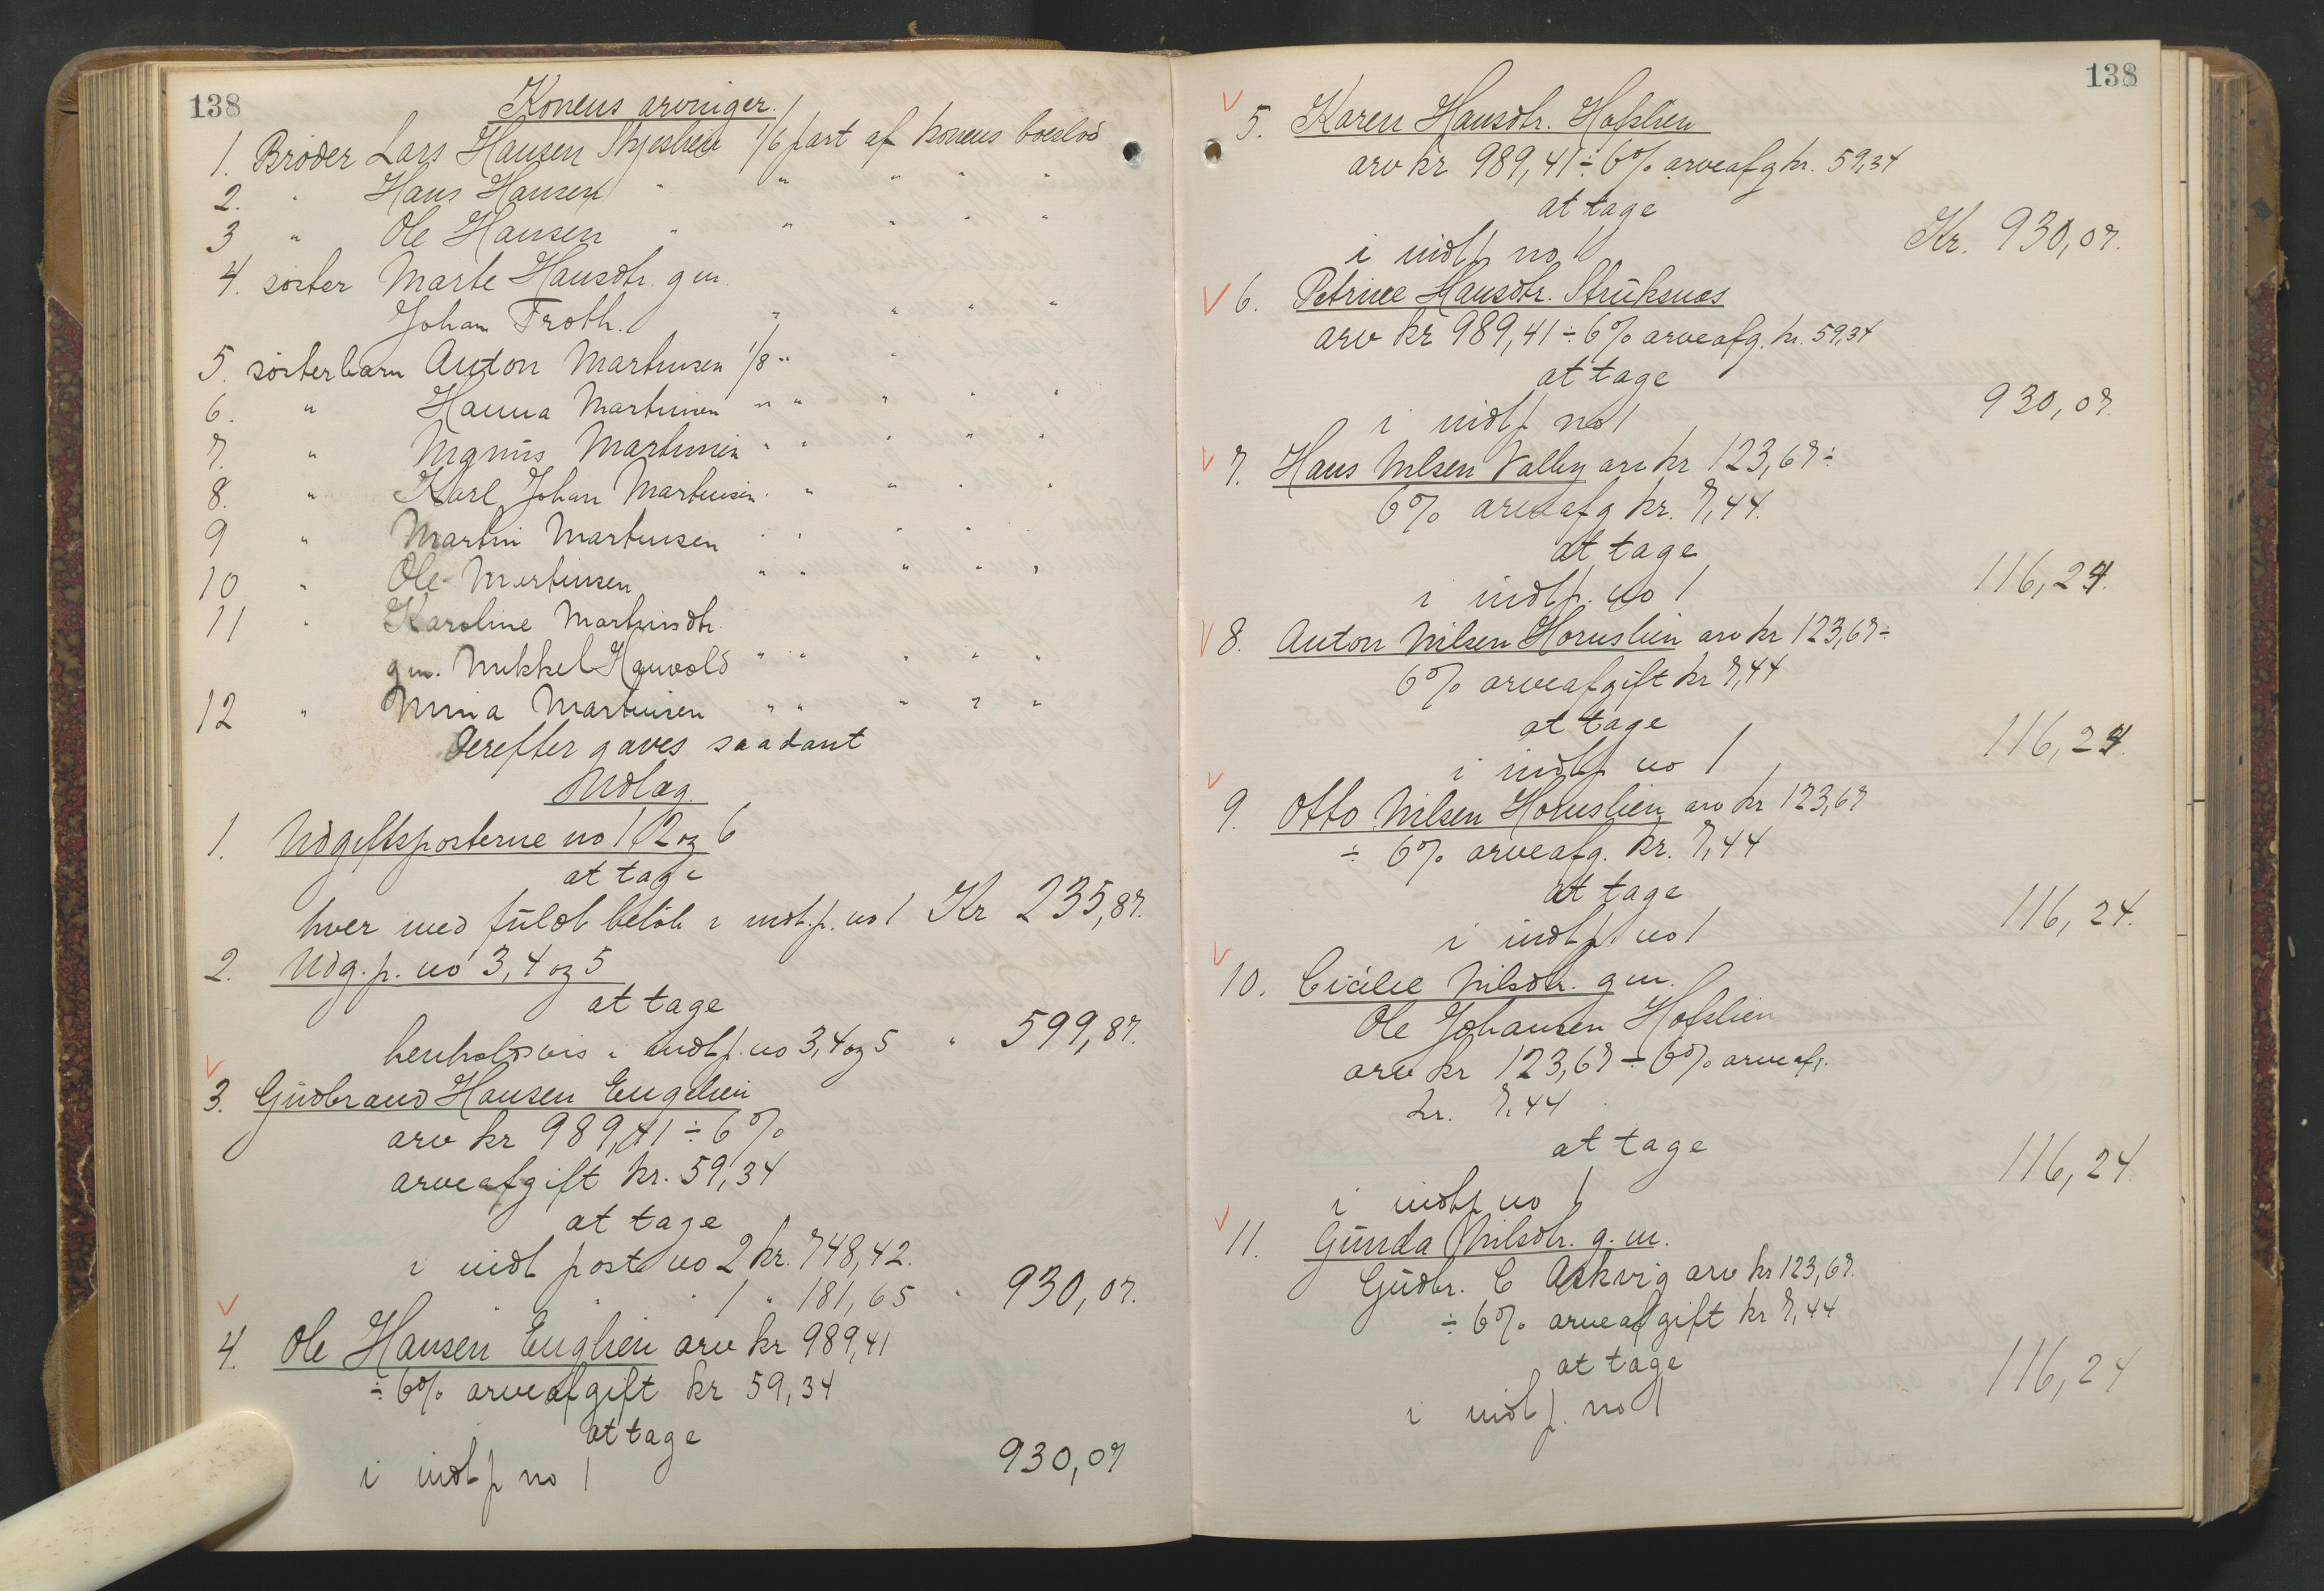 138
Konens arvniger.
1. Broder Lars Hansen Skjeslien 1/6 part af konens boeslod
2. " Hans Hansen " " " " "
3 " Ole Hansen " " " " "
4. søster Marte Hansdtr. gm.
Johan Troth. " " " "
5. søsterbarn Anton Martinsen 1/8 " "
6. " Hanna Martinsen " " " " "
7. " Magnus Martinsen " " " " "
8. " Karl Johan Martinsen " " " " "
9 " Martin Martinsen " " " " "
10 " Ole Martinsen " " " " "
11 " Karoline Martinsdtr.
gm. Mikkel Hauvold " " " " "
12 " Mina Martinsen " " " " "
Derefter gaves saadant
Udlæg
1. Udgiftsposterne no 1, 2 og 6
at tage
hver med fuldt beløb i indt.p. no 1 Kr 235,87.
2. Udg.p. no 3, 4 og 5
at tage
henholdsvis i indt.p. no 3, 4 og 5 " 599,87.
3. Gudbrand Hansen Englien
arv kr 989,41 ÷ 6%
arveafgift kr. 59,34
at tage
i indt post no 2 kr. 748,42.
" " " 1 " 181,65 " 930,07.
4. Ole Hansen Englien arv kr 989,41
÷ 6% arveafgift kr 59,34
at tage
i indt p no 1 930,07
138
5. Karen Hansdtr. Hofslien
arv kr 989,41 ÷ 6% arveafg kr. 59,34
at tage
i indt p no 1 Kr. 930,07.
6. Petrine Hansdtr. Struksnæs
arv kr 989,41 ÷ 6% arveafg. kr. 59,34
at tage
i indt p no 1 930,07.
7. Hans Nilsen Valby arv kr 123,67 ÷
6% arveafg kr. 7,44.
at tage
i indt p. no 1 116,24.
8. Anton Nilsen Hornslien arv kr 123,67 ÷
6% arveafgift kr 7,44
at tage
i indt p no 1 116,24.
9. Otto Nilsen Hornslien arv kr 123,67
÷ 6% arveafg. kr. 7,44
at tage
i indt p no 1 116,24.
10. Cicilie Nilsdtr. gm.
Ole Johansen Hofslien
arv kr 123,67 ÷ 6% arveafg.
kr. 7,44
at tage
i indt p no 1 116,24.
11. Gunda Nilsdtr. g.m.
Gudbr. C Askvig arv kr 123,67.
÷ 6% arveafgift kr 7,44
at tage
i indt p. no 1 116,24